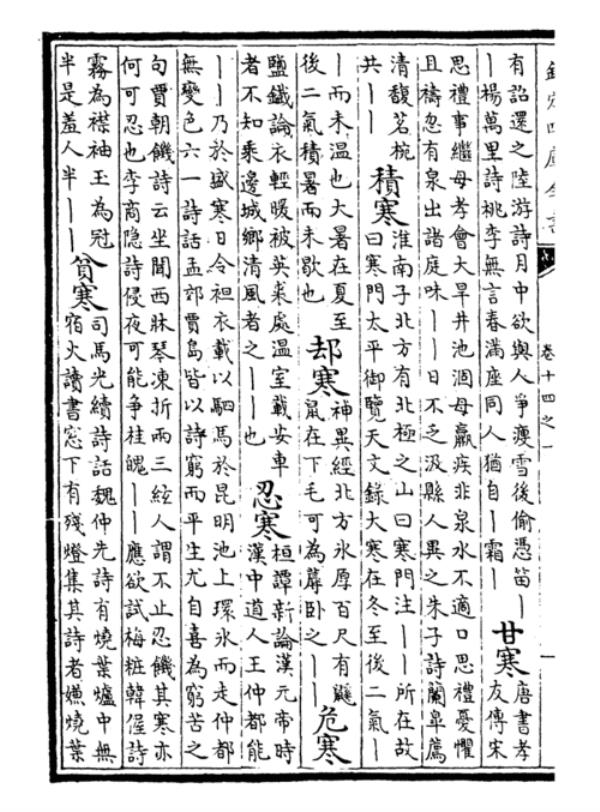 欽定四庫全書
卷十四之一
有詔還之陸游詩月中欲與人爭瘦雪後偷憑笛丨
丨楊萬里詩桃李無言春滿座同人猶自丨霜丨
甘寒
唐書孝
友傳宋
思禮事繼母孝會大旱井池涸母羸疾非泉水不適口思禮憂懼
且禱忽有泉出諸庭味丨丨日不乏汲縣人異之朱子詩蘭皐薦
清馥茗椀
共丨丨
積寒
淮南子北方有北極之山曰寒門注丨丨所在故
曰寒門太平御覽天文錄大寒在冬至後二氣丨
丨而未温也大暑在夏至
後二氣積暑而未歇也
却寒
神異經北方氷厚百尺有鼷
鼠在下毛可為蓐卧之丨丨
危寒
鹽鐵論衣輕暖被英裘處温室載安車
者不知乘邊城鄉清風者之丨丨也
忍寒
桓譚新論漢元帝時
漢中道人王仲都能
丨丨乃於盛寒日令袒衣載以駟馬於昆明池上環氷而走仲都
無變色六一詩話孟郊賈島皆以詩窮而平生尤自喜為窮苦之
句賈朝饑詩云坐聞西牀琴凍折兩三絃人謂不止忍饑其寒亦
何可忍也李商隐詩侵夜可能爭桂魄丨丨應欲試梅粧韓偓詩
霧為襟袖玉為冠
半是羞人半丨丨
貧寒
司馬光續詩話魏仲先詩有燒葉爐中無
宿火讀書窓下有殘燈集其詩者嫌燒葉